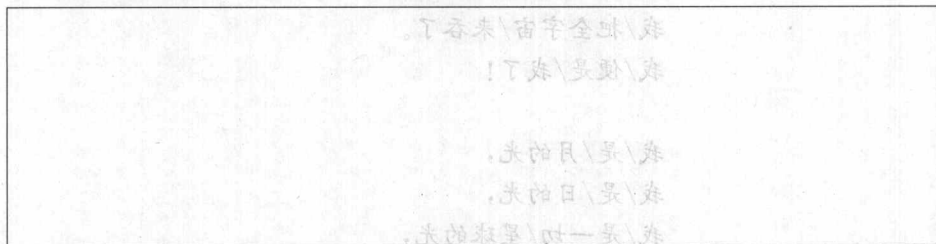 我/把全宇宙/来吞了。
我/便是/我了！
我/是/月的光，
我/是/日的光，
我/是一切/星球的光，